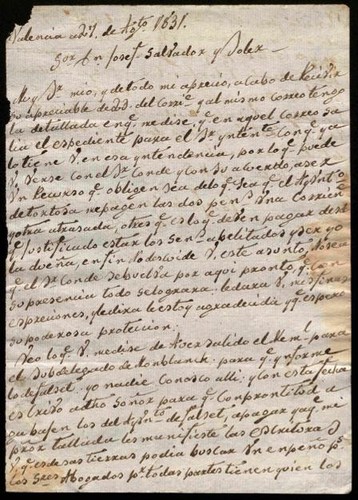 Valencia a 27 de Agto 1831.
Sor Dn Josef Salvador y Soler
Muy Sr mio, y de todo mi aprecio, acabo de Recivir
su apreciable de 23 del corrte y al mismo correo tengo
la detallada en q me dise, q en aquel correo sa
lia el espediente para el Sr yntente con q ya
lo tiene V. en esa yntendencia, por lo q puede
V. verse con el Sr Conde y con su acuerdo, aser
Un Recurso q obligen sea del q sea q el Aynto
de tortosa me pagen las dos pens Una corrien
y otra atrasada, otras q es lo q deben pagar desd
q justificado estar los sens abelitados y ser yo
la dueña, en fin todo es de V. este asunto,
q el Sr Conde se buelba por aqui pronto, q con
su presencia todo se lograra, le dara V. mis finas
espreciones, y le dira le estoy agradecida y q espero
su poderosa proteccion.
Veo lo q V. me dise de aser salido el Meml para
el Subdelegado de Monblanch para q ynforme
lo de falset, yo nadie Conosco alli, y con esta fecha
escrivo a dho Señor para q con prontitud a
su bajen los del Aynto de falset, a pagar y a q mi
les manifieste las Escrituras d
q es de sas tierras podia buscar Un enpeño ps
los Sres Abogados pr todas partes tienen quien los